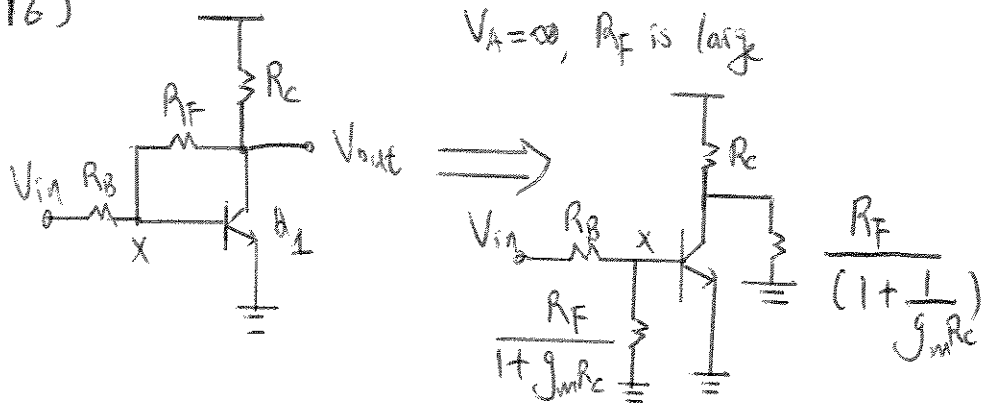 16)
V_A = ∞, R_F is large
R_C
R_F
V_out
V_in
R_B
X
Q_1
R_C
V_in
R_B
X
R_F / (1 + g_m R_C)
R_F / (1 + 1 / g_m R_C)